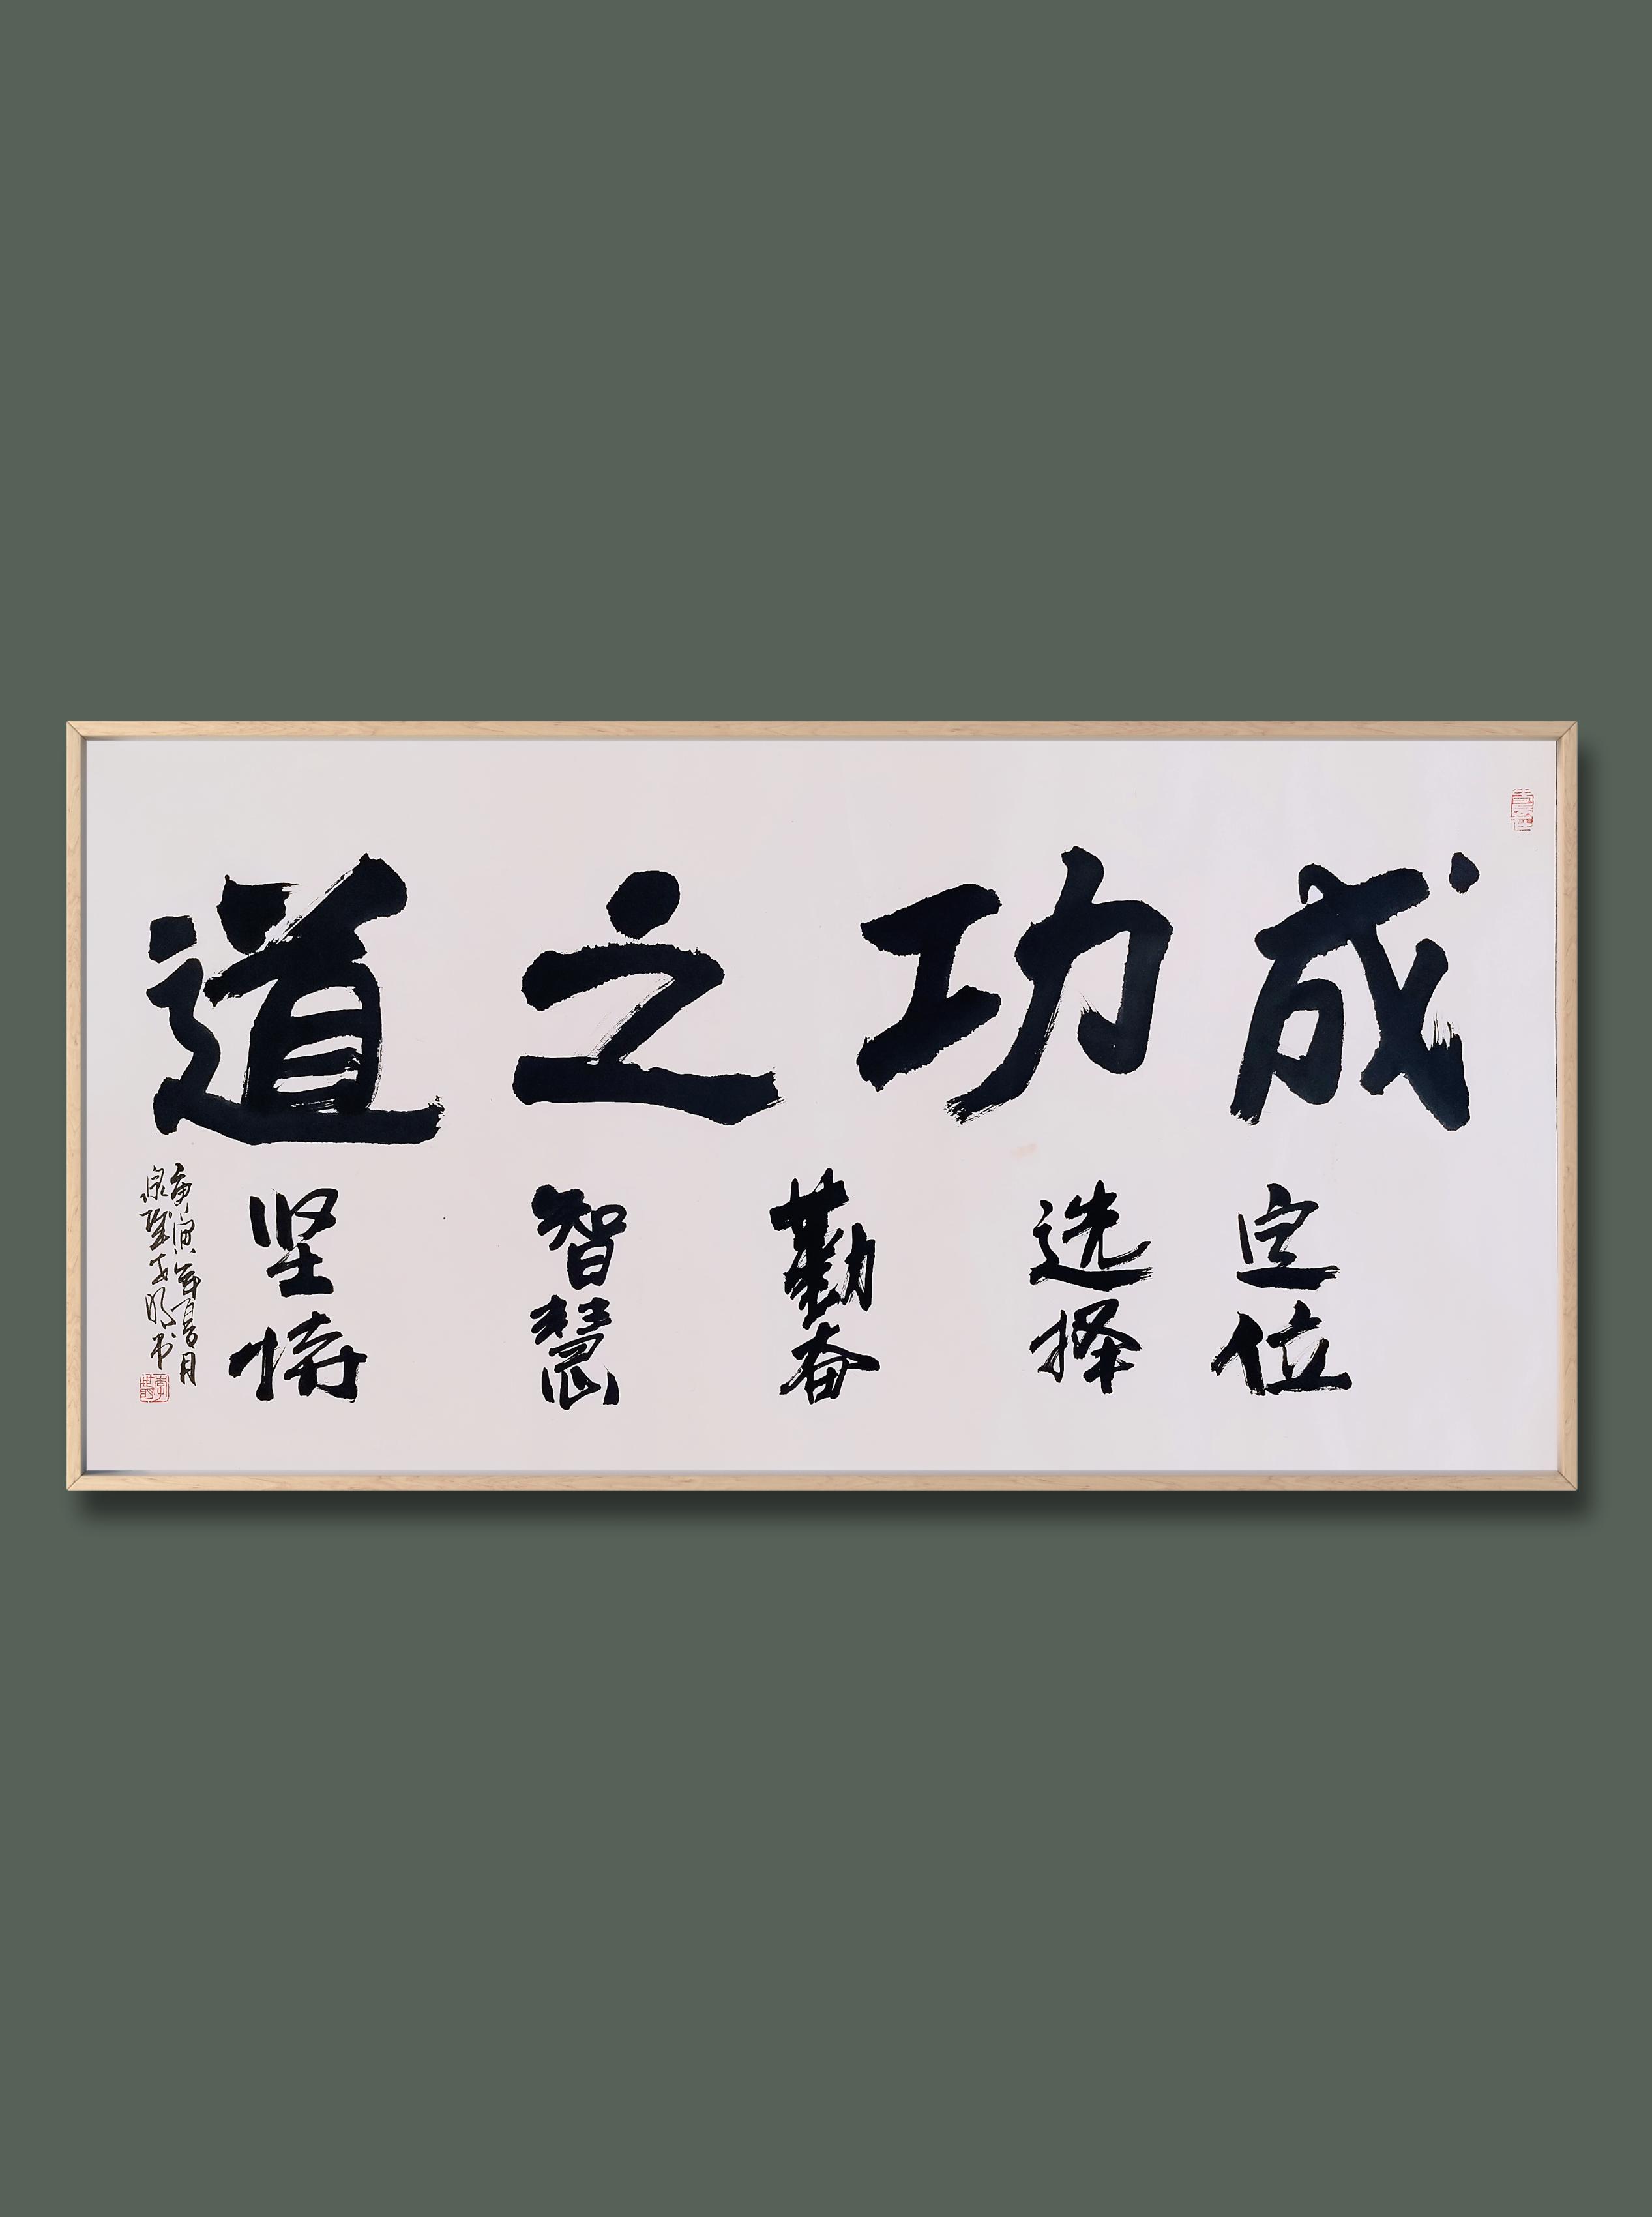 成功之道
定位
选择
勤奋
智慧
坚持
庚寅年夏月